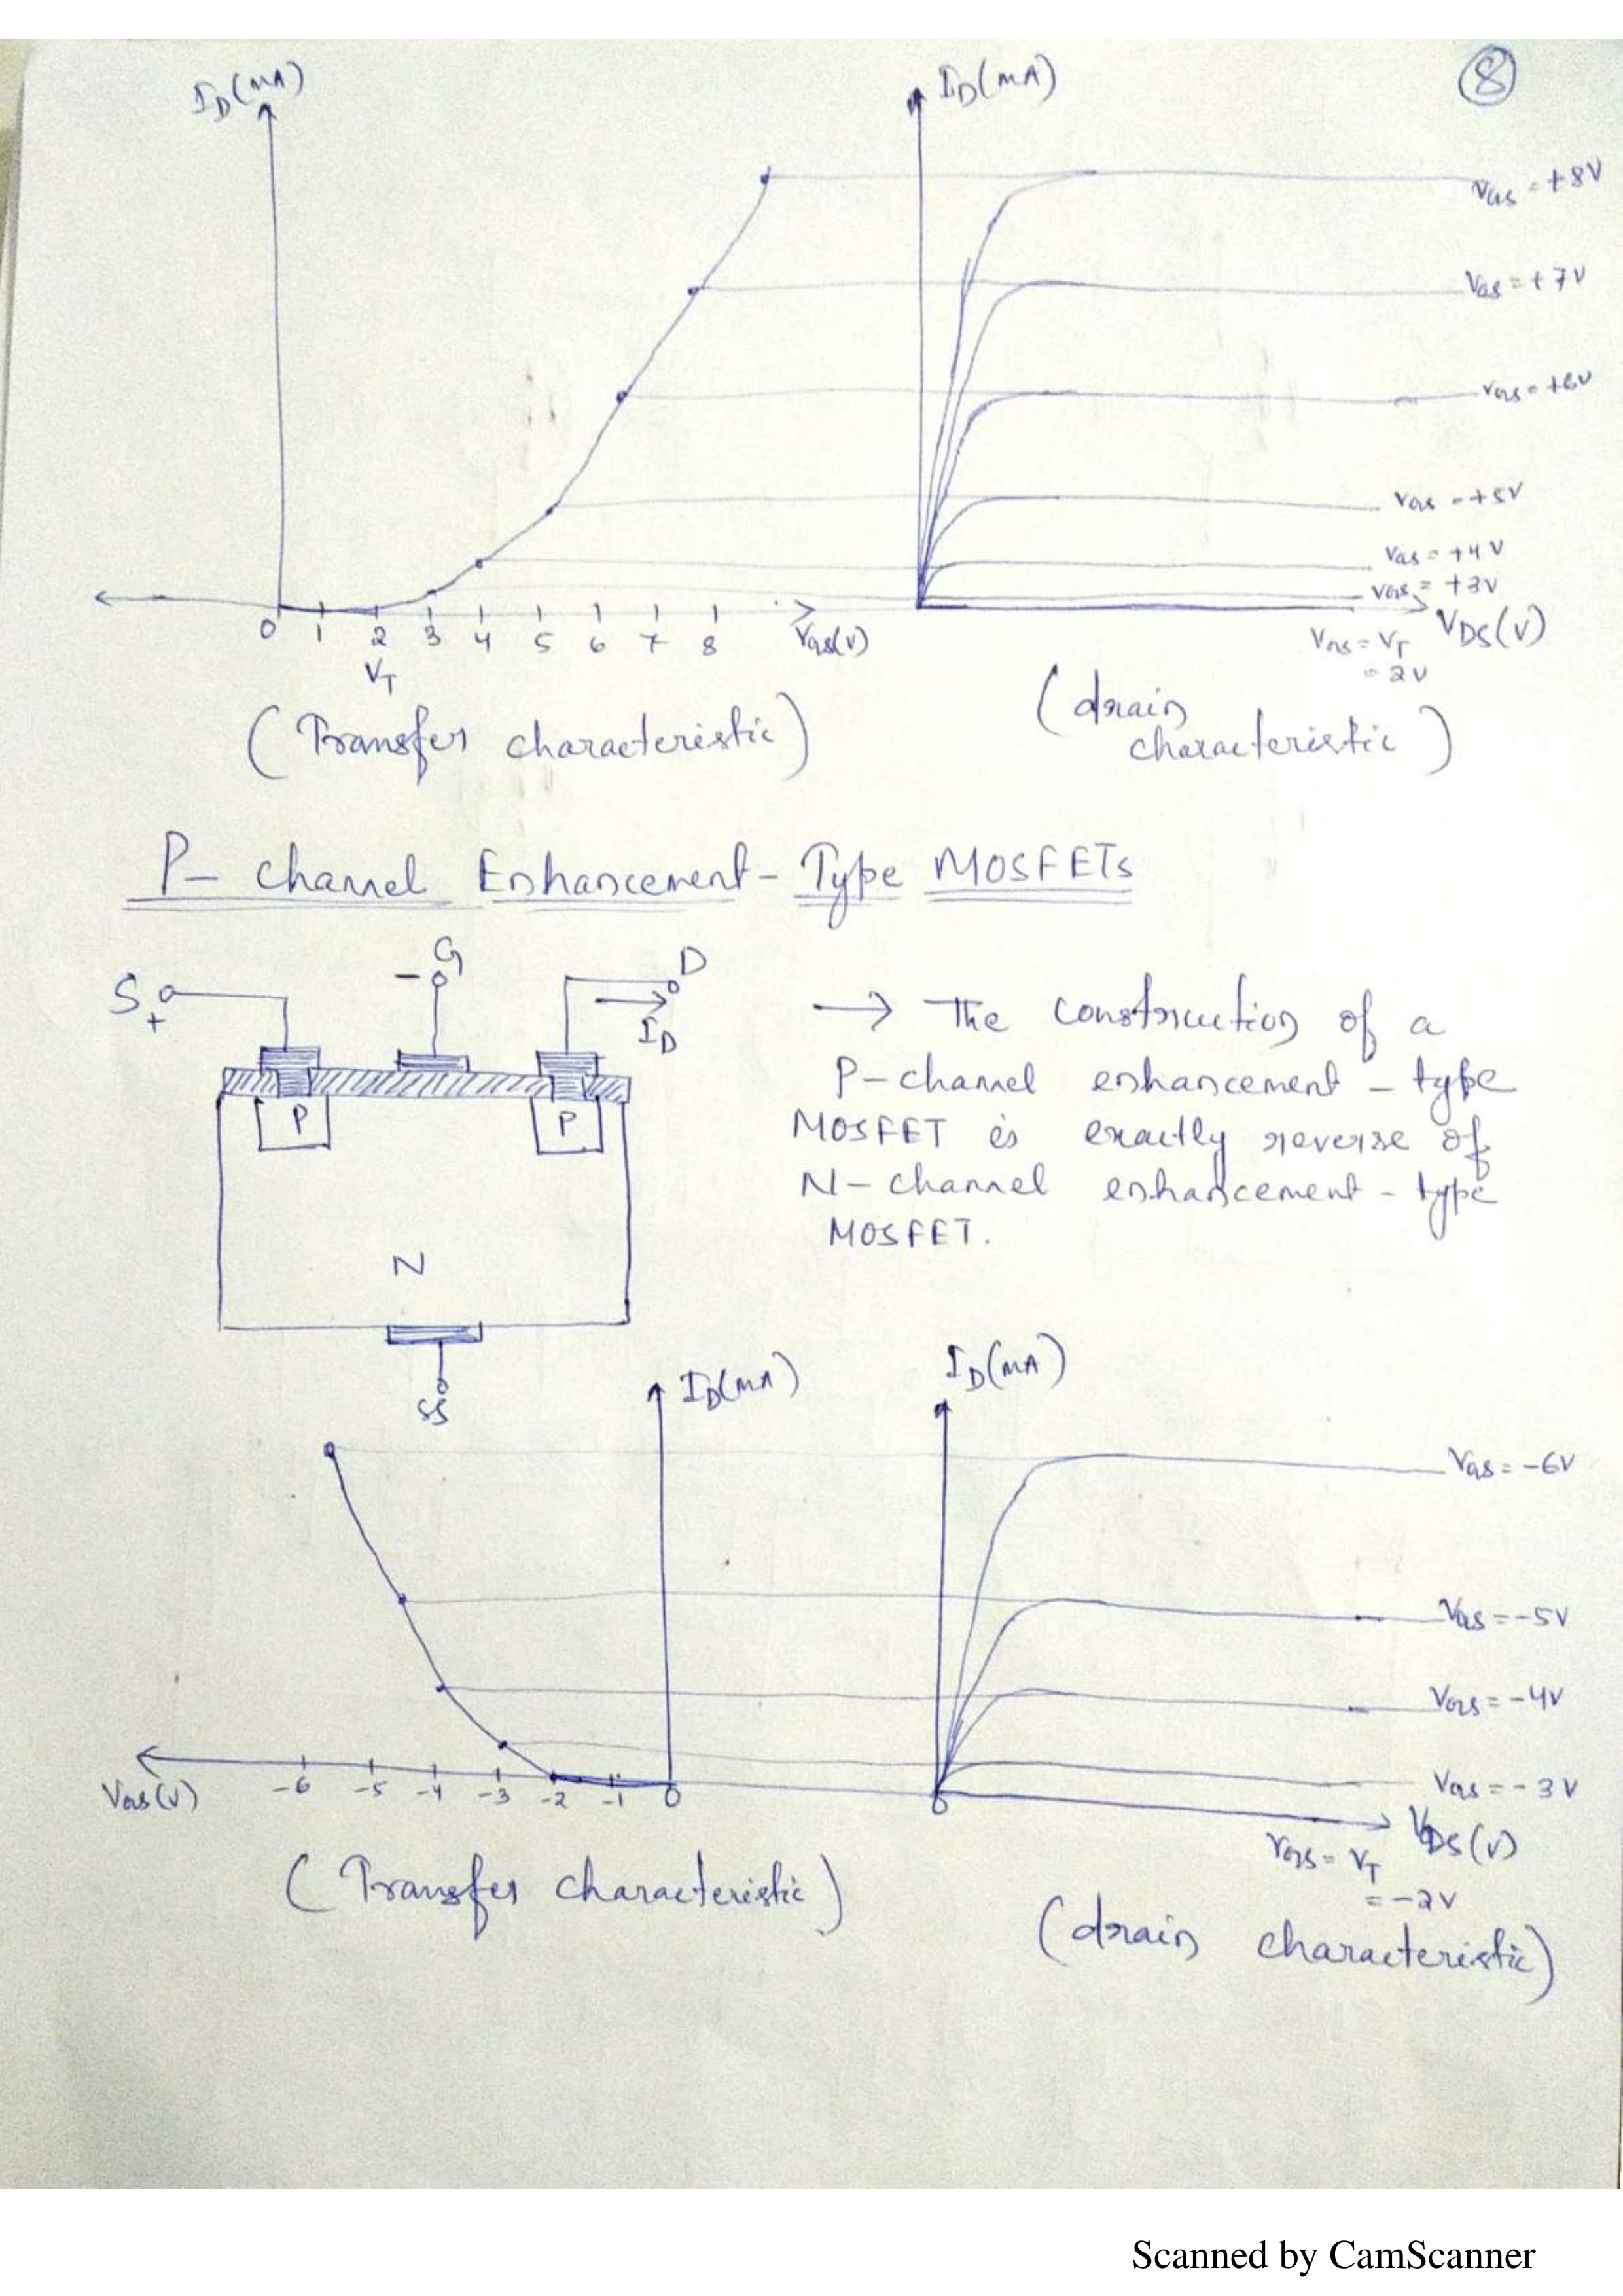 8
I_D(mA)
I_D(mA)
V_GS = +8V
V_GS = +7V
V_GS = +6V
V_GS = +5V
V_GS = +4V
V_GS = +3V
0 1 2 3 4 5 6 7 8 V_GS(V)
V_T
V_GS = V_T
= 2V
V_DS(V)
(Transfer characteristic)
(drain
characteristic)
P- channel Enhancement-Type MOSFETs
S + - G D
I_D
P P
N
SS
→ The construction of a
P-channel enhancement-type
MOSFET is exactly reverse of
N-channel enhancement-type
MOSFET.
I_D(mA)
I_D(mA)
V_GS = -6V
V_GS = -5V
V_GS = -4V
V_GS = -3V
V_GS(V) -6 -5 -4 -3 -2 -1 0
0
V_DS(V)
V_GS = V_T
= -2V
(Transfer characteristic)
(drain characteristic)
Scanned by CamScanner